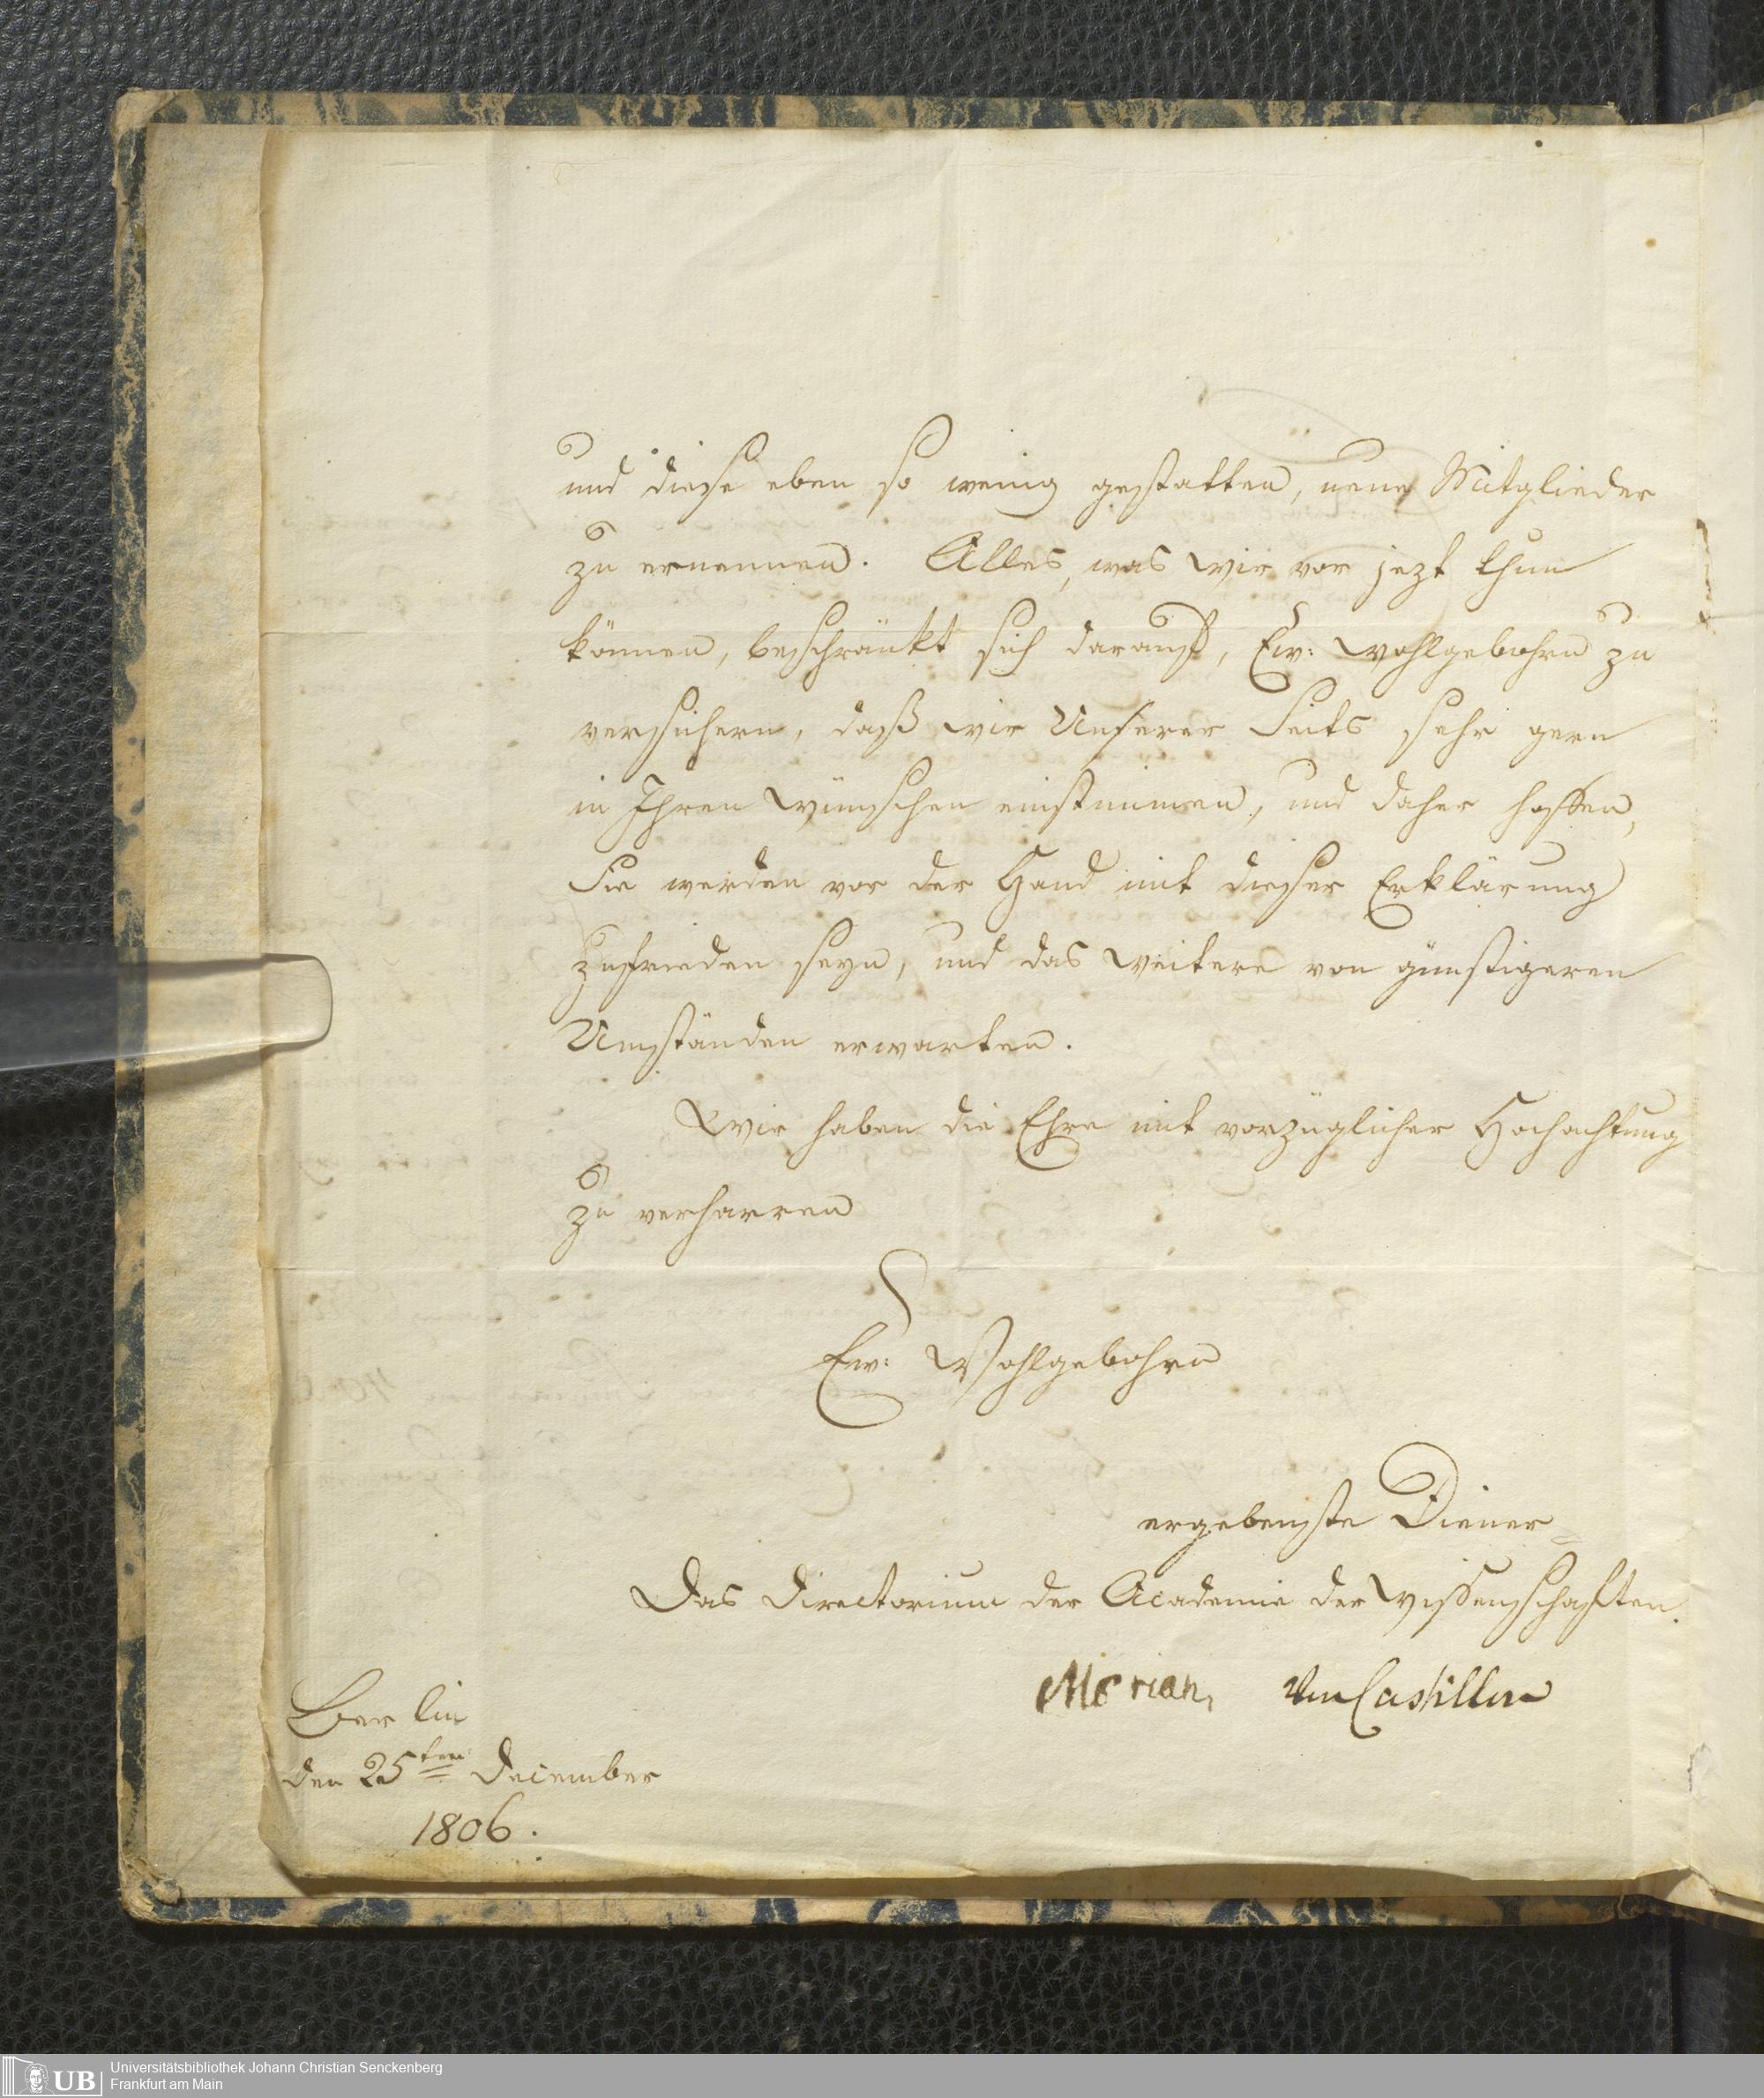 und diese eben so wenig gestatten, neue Mitglieder
zu ernennen. Alles, was wir vor jezt thun
können, beschränkt sich darauf, Ew: Wohlgebohrn zu
versichern, daß wir Unserer Seits sehr gern
in Ihren Wünschen einstimmen, und daher hoffen,
Sie werden vor der Hand mit dieser Erklärung
zufrieden seyn, und das Weitere von günstigeren
Umständen erwarten.
Wir haben die Ehre mit vorzüglicher Hochachtung
zu verharren
Ew: Wohlgebohrn
ergebenste Diener
Das Directorium der Academie der Wissenschaften.
Merian, von Castillon
Berlin
den 25ten December
1806.
UB Universitätsbibliothek Johann Christian Senckenberg
Frankfurt am Main